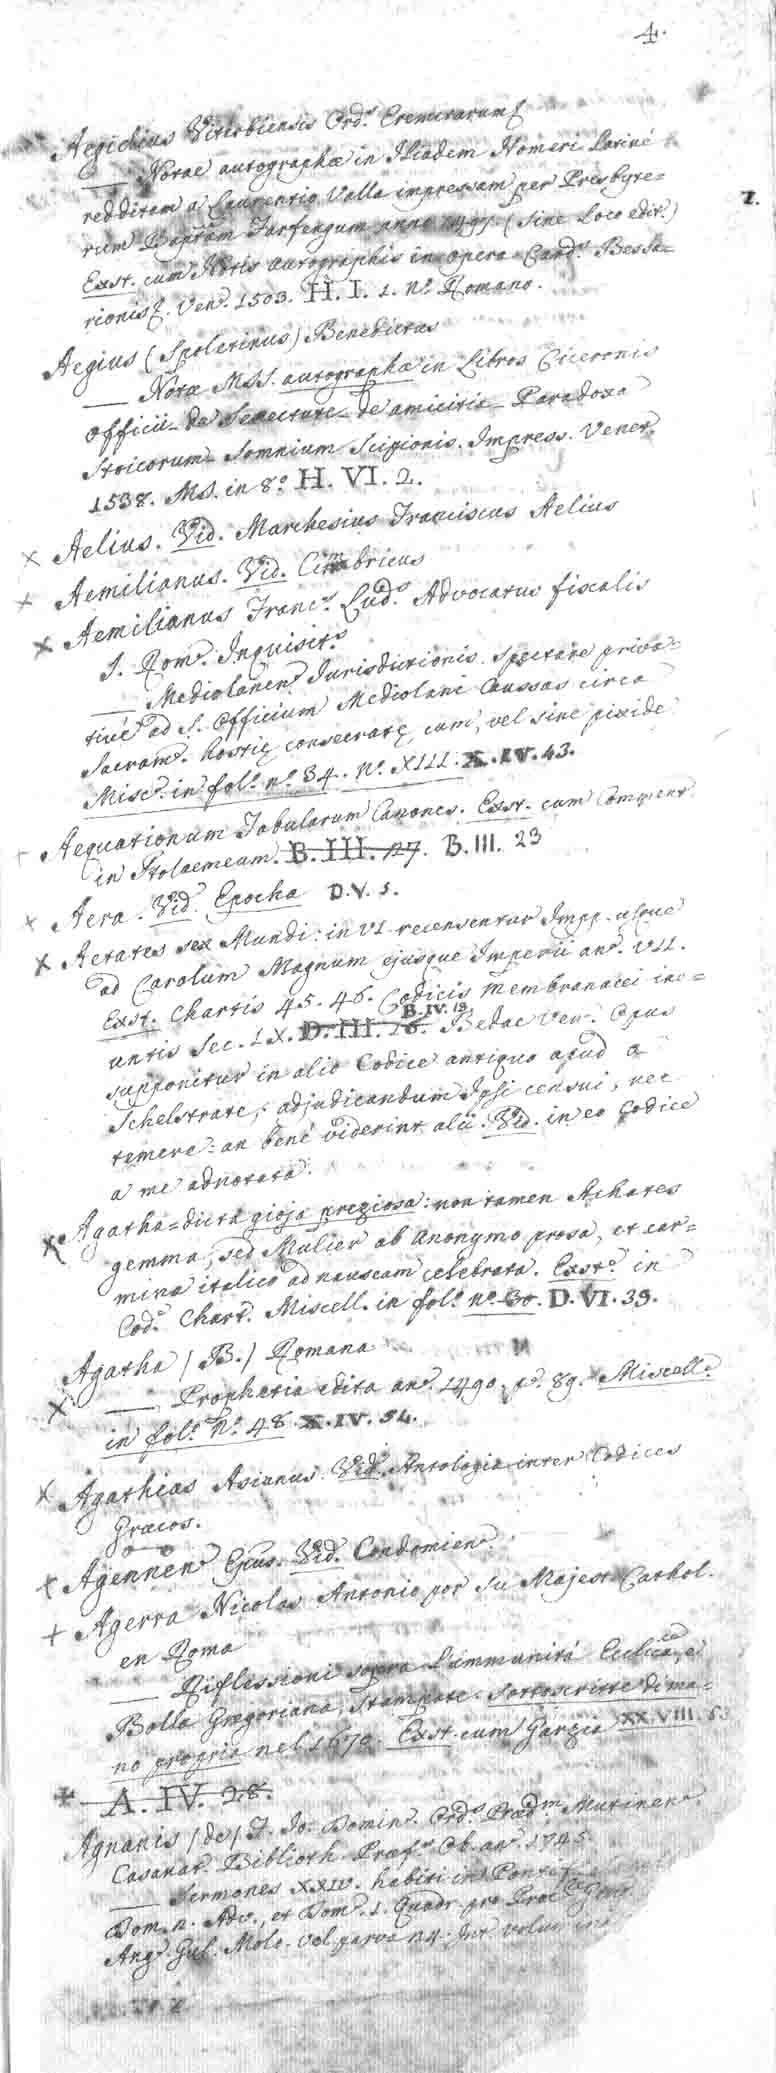 4.
Aegidius Viterbiensis Ord.s Eremitarum
— Notae autographæ in Iliadem Homeri Latiné
redditam a Laurentio Valla impressam per Presbyte=
rum Baptam Farfengum anno 1497. (sine Loco edit.)
Z.
Exst. cum Notis autographis in opera Card. Bessa=
rionis. Ven. 1503. H. I. 1. nº Romano.
Aegius (Spoletinus) Benedictus
— Notæ MSS. autographæ in Libros Ciceronis
Officii_ de Senectute_ de amicitia_ Paradoxa
Stoicorum_ Somnium Scipionis. Impress. Venet.
1538. MS. in 8.º H. VI. 2.
x Aelius. Vid. Marchesius Franciscus Aelius
x Aemilianus. Vid. Cimbricus
x Aemilianus Franc.s Lud.s Advocatus fiscalis
S. Rom. Inquisit.s
— Mediolanen. Jurisdictionis spectare priva=
tivé ad S. Officium Mediolani Caussas circa
Sacram. hostię consecratę cum, vel sine pixide
Misc. in fol.º n.º 34. n.º XIII. X. IV. 43.
+ Aequationum Tabularum Canones. Exst. cum Comment.
in Ptolaemeum. B. III. 27. B. III. 23
x Aera. Vid. Epocha D. V. 5.
x Aetates sex Mundi: in VI recensentur Impp. usque
ad Carolum Magnum ejusque Imperii an. VII.
Exst. Chartis 45. 46. Codicis Membranacei ine=
B. IV. 18.
untis Sec. IX. D. III. 16. Bedae Ven. Opus
supponitur in alio Codice antiquo apud a
Schelstrate; adjudicandum Ipsi censui, nec
temere: an bené viderint alii. Vid. in eo Codice
a me adnotata.
x Agatha=dicta gioja preziosa: non tamen Achates
gemma, sed Mulier ab Anonymo prosa, et car=
mina italico ad nauseam celebrata. Exst. in
Cod. Chart. Miscell. in fol.º n.º 30. D. VI. 39.
Agatha (B.) Romana
x — Prophetia edita an. 1490. p. 89. Miscell.
in fol.º n.º 48. X. IV. 54.
x Agathias Asianus. Vid. Antologia inter Codices
Græcos.
x Agennen Epus. Vid. Condomien.
+ Agerra Nicolas Antonio por su Majest. Cathol.
en Roma
— Riflessioni sopra L'immunitá Ecclica, e
Bolla Gregoriana, stampate. Sottoscritte di ma=
no propria nel 1670. Exst. cum Garzia XX. VIII. 5
+ A. IV. 28.
Agnanis (de) F. Jo. Domin. Ord.s Præd.m Mutinen.
Casanat. Biblioth. Præf.s Ob. an. 1745.
— Sermones XXIV. habiti in
Dom. n. Adv., et Dom. 1. Quadr. pro
Ang. Gul. Molo. vel parva n4. Int. volum.